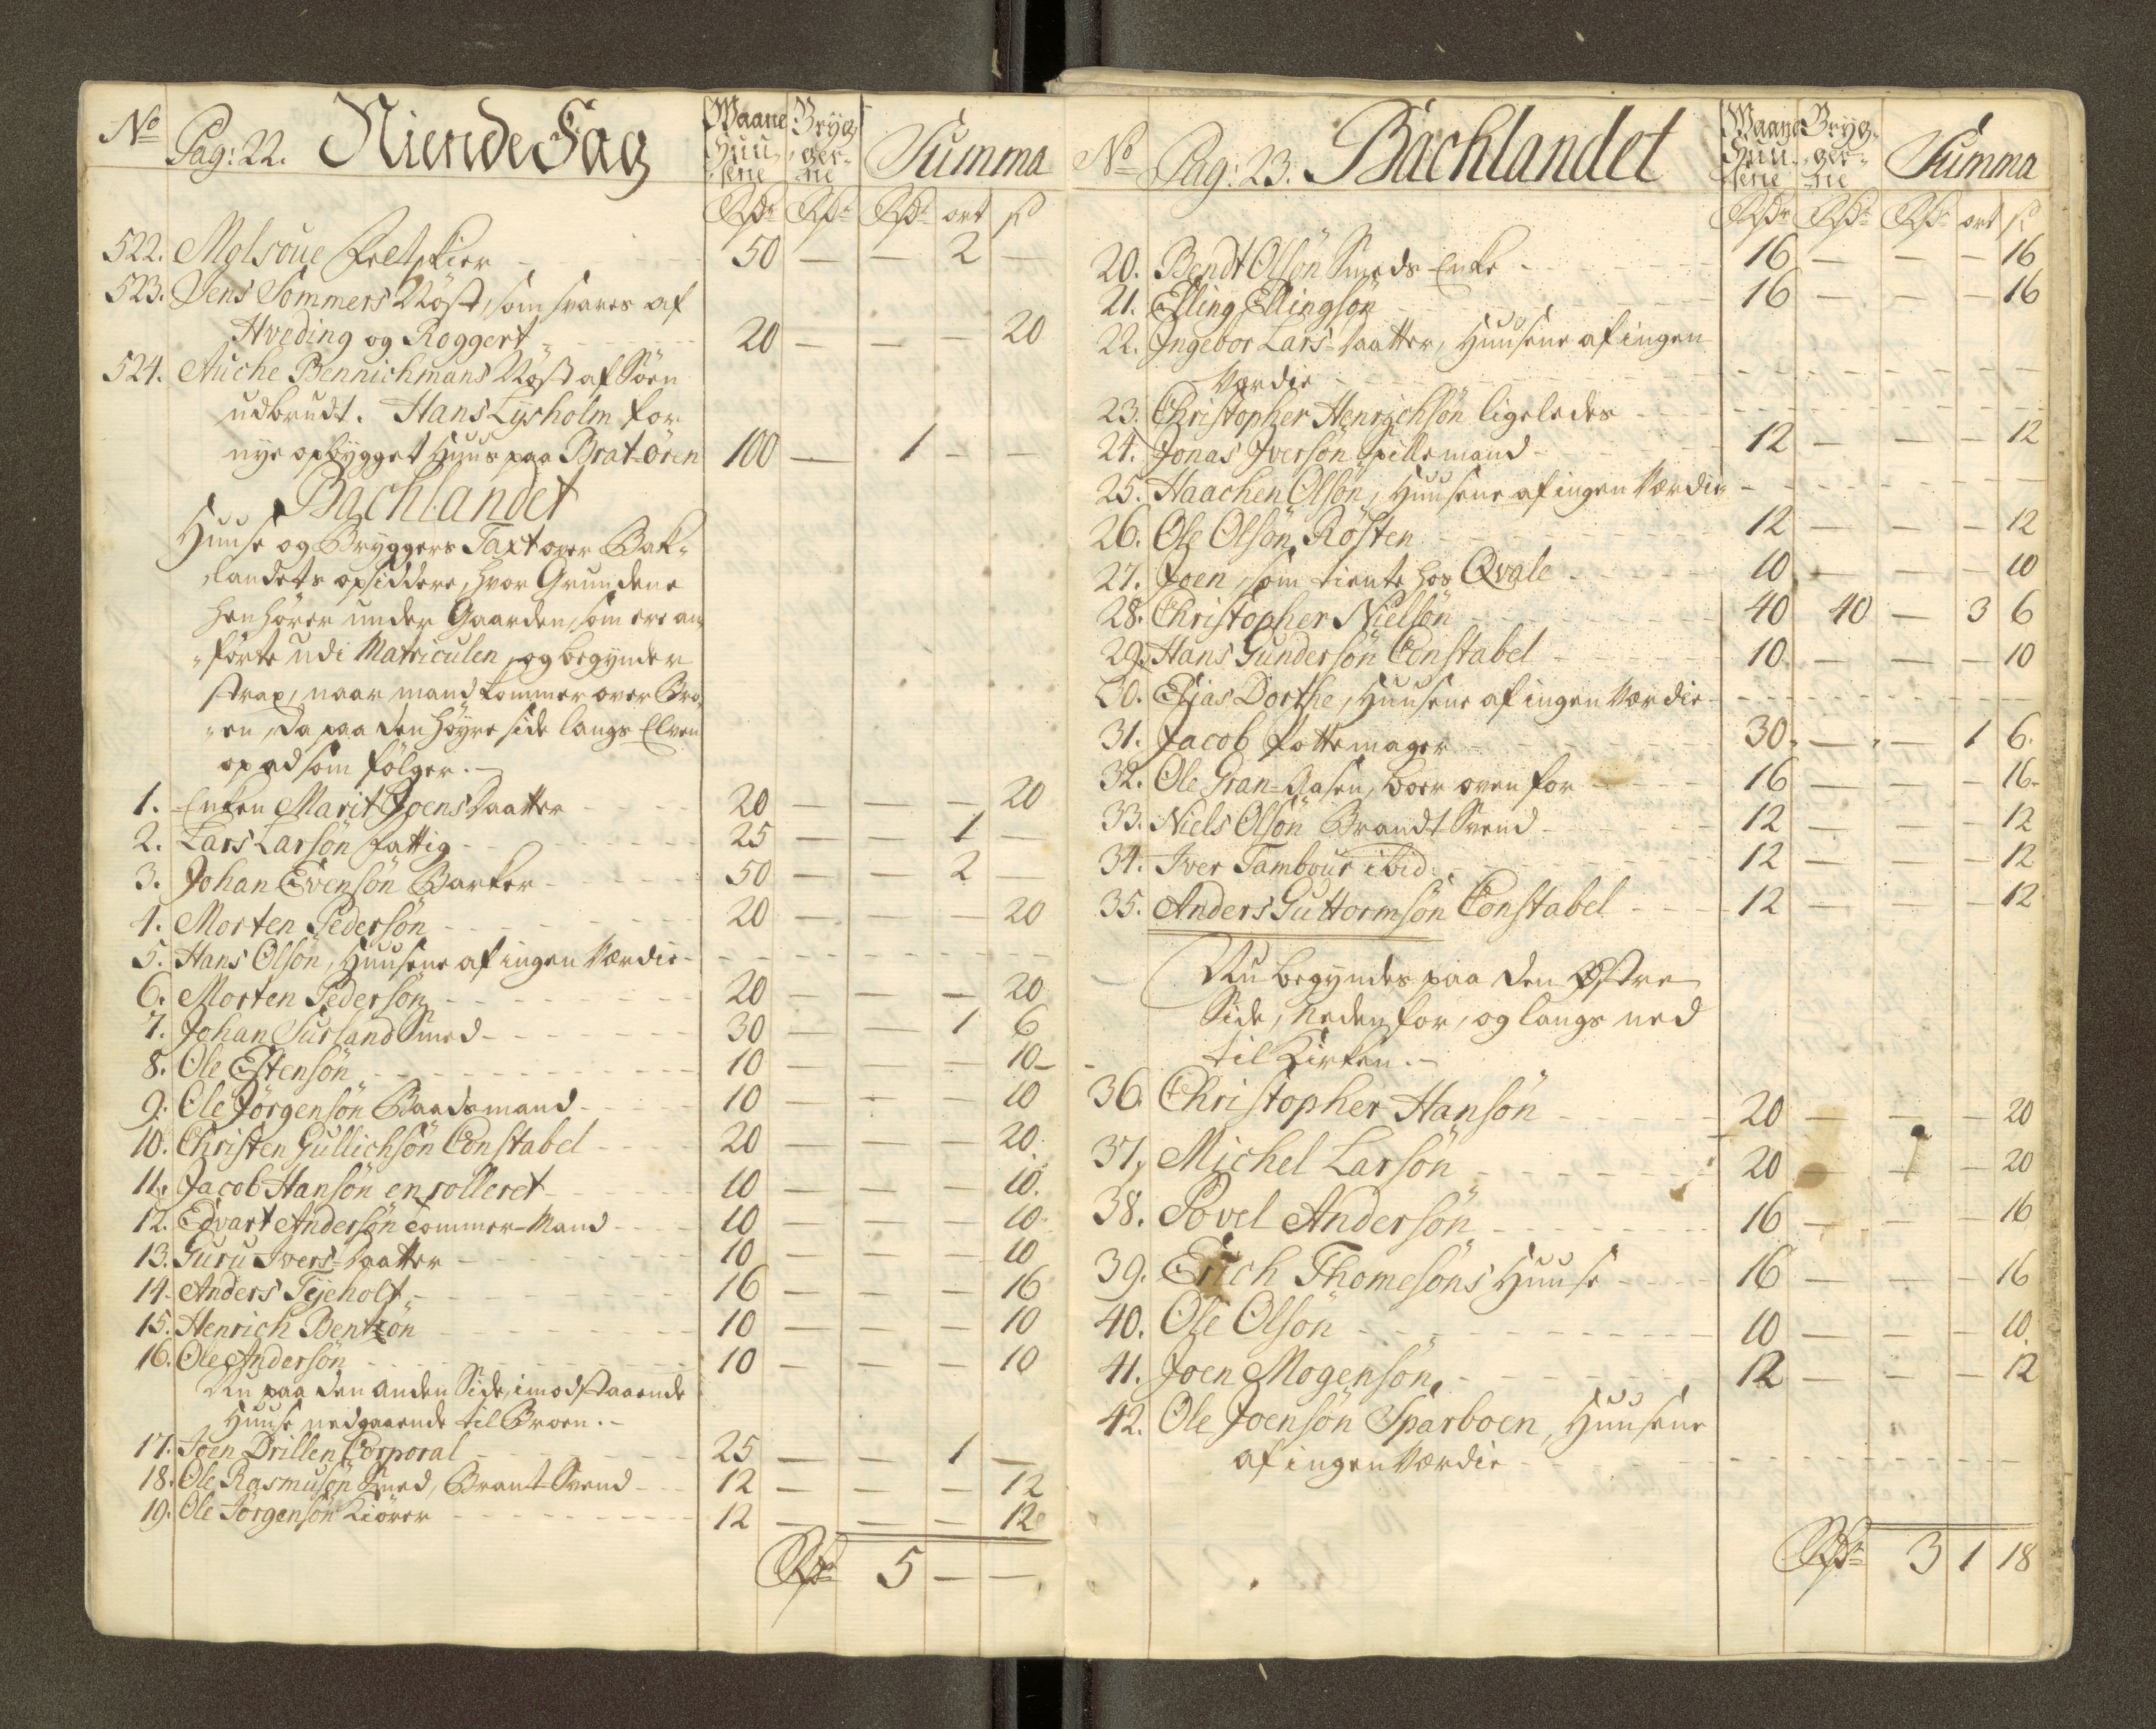 No Pag: 22. Niende Fag Waane Huusene Bryggerne Summa
Rdr Rdr Rdr ort s
522. Molsoue Feltskier 50 — — 2 —
523. Jens Sommers Nøst, som svares af
Hveding og Roggert 20 — — — 20
524. Auche Bennichmans Nøst af Söen
udbrudt. Hans Lysholm for
nye opbygget Huus paa Brat-Ören 100 — 1 — —
Bachlandet
Huuse og Bryggers Taxt over Bak-
landets opsiddere, hvor Grundene
henhörer under Gaarden, som ere an-
förte udi Matriculen, og begynder
strax, naar mand kommer over Bro-
en, da paa den höyre side langs Elven
op ad som fölger.
1. Enken Marit Joens Daatter 20 — — — 20
2. Lars Larsön fattig 25 — — 1 —
3. Johan Evensön Barker 50 — — 2 —
4. Morten Pedersön 20 — — — 20
5. Hans Olsön, Huusene af ingen Værdie
6. Morten Pedersön 20 — — — 20
7. Johan Surland Smed 30 — — 1 6
8. Ole Estensön 10 — — — 10
9. Ole Jörgensön Baadsmand 10 — — — 10
10. Christen Gullichsön Constabel 20 — — — 20
11. Jacob Hansön enrolleret 10 — — — 10
12. Edvart Andersön Tommer-Mand 10 — — — 10
13. Guru Ivers-Daatter 10 — — — 10
14. Anders Tyeholt 16 — — — 16
15. Henrich Bentzön 10 — — — 10
16. Ole Andersön 10 — — — 10
Nu paa den anden Side, imodstaaende
Huuse nedgaaende til Broen.
17. Joen Drillen Corporal 25 — — 1 —
18. Ole Rasmusön Smed, Brant-Svend 12 — — — 12
19. Ole Jörgensön Kiörer 12 — — — 12
Rdr 5 — —
No Pag: 23. Bachlandet Waane Huusene Bryggerne Summa
Rdr Rdr Rdr ort s
20. Bendt Olsön Smeds Enke 16 — — — 16
21. Elling Ellingsön 16 — — — 16
22. Ingebor Lars-Daatter, Huusene af ingen
Værdie
23. Christopher Henrichsön ligeledes
24. Jonas Iversön Spillemand 12 — — — 12
25. Haachen Olsön, Huusene af ingen Værdie
26. Ole Olsön Rösten 12 — — — 12
27. Joen, som tiente hos Qvale 10 — — — 10
28. Christopher Nielsön 40 40 — 3 6
29. Hans Gundersön Constabel 10 — — — 10
30. Elias Dorthe, Huusene af ingen Værdie
31. Jacob Pottemager 30 — — 1 6
32. Ole Gran-Aasen, boer oven for 16 — — — 16
33. Niels Olsön Brandt-Svend 12 — — — 12
34. Iver Tambour ibid. 12 — — — 12
35. Anders Guttormsön Constabel 12 — — — 12
Nu begyndes paa den Østre
Side, neden for, og langs ned
til Kirken.
36. Christopher Hansön 20 — — — 20
37. Michel Larsön 20 — — — 20
38. Povel Andersön 16 — — — 16
39. Erich Thomesöns Huuse 16 — — — 16
40. Ole Olsön 10 — — — 10
41. Joen Mogensön 12 — — — 12
42. Ole Joensön Sparboen, Huusene
af ingen Værdie
Rdr 3 1 18